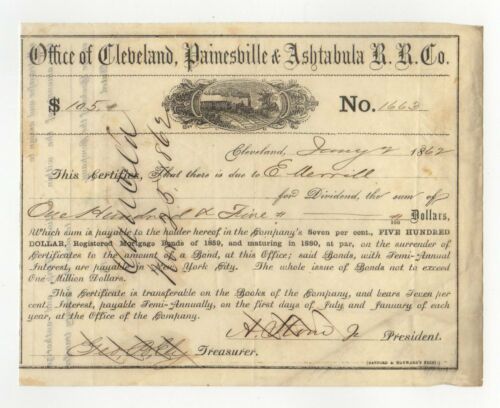 Office of Cleveland, Painesville & Ashtabula R. R. Co.
$ 105 No. 1663
Cleveland, Jany 2 1862
This Certifies, That there is due to E. Merrill
for Dividend, the sum of
One Hundred & Five Dollars,
Which sum is payable to the holder hereof in the Company's Seven per cent., FIVE HUNDRED
DOLLAR, Registered Mortgage Bonds of 1859, and maturing in 1880, at par, on the surrender of
Certificates to the amount of a Bond, at this Office; said Bonds, with Semi-Annual
Interest, are payable in New York City. The whole issue of Bonds not to exceed
One Million Dollars.
This Certificate is transferable on the Books of the Company, and bears Seven per
cent. Interest, payable Semi-Annually, on the first days of July and January of each
year, at the Office of the Company.
A. Stone Jr President.
Treasurer.
(SANFORD & HAYWARD'S PRINT.)
Canceld
25 1862